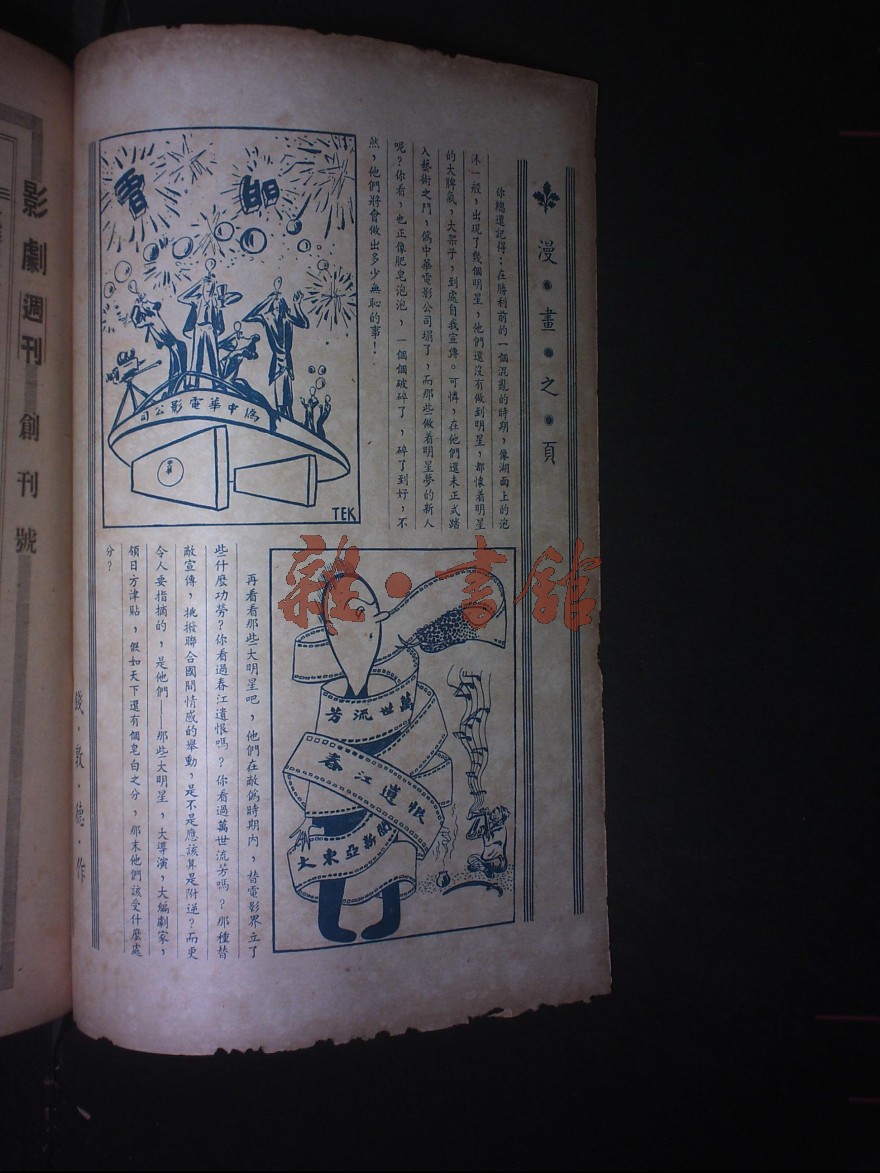 漫・畫・之・頁
你總還記得：在勝利前的一個混亂的時期，像湖面上的泡
沫一般，出現了幾個明星，他們還沒有做到明星，都懷着明星
的大脾氣，大架子，到處自我宣傳。可憐，在他們還未正式踏
入藝術之門，偽中華電影公司塌了，而那些做着明星夢的新人
呢？你看，也正像肥皂泡泡，一個個破碎了，碎了到好，不
然，他們將會做出多少無恥的事！
偽中華電影公司
中華
TEK
萬世流芳
春江遺恨
大東亞新聞
再看看那些大明星吧，他們在敵偽時期內，替電影界立了
些什麼功勞？你看過春江遺恨嗎？你看過萬世流芳嗎？那種替
敵宣傳，挑撥聯合國間情感的舉動，是不是應該算是附逆？而更
令人要指摘的，是他們——那些大明星，大導演，大編劇家，
領日方津貼，假如天下還有個皂白之分，那末他們該受什麼處
分？
敦・德・作
影劇週刊 創刊號
雜・書館